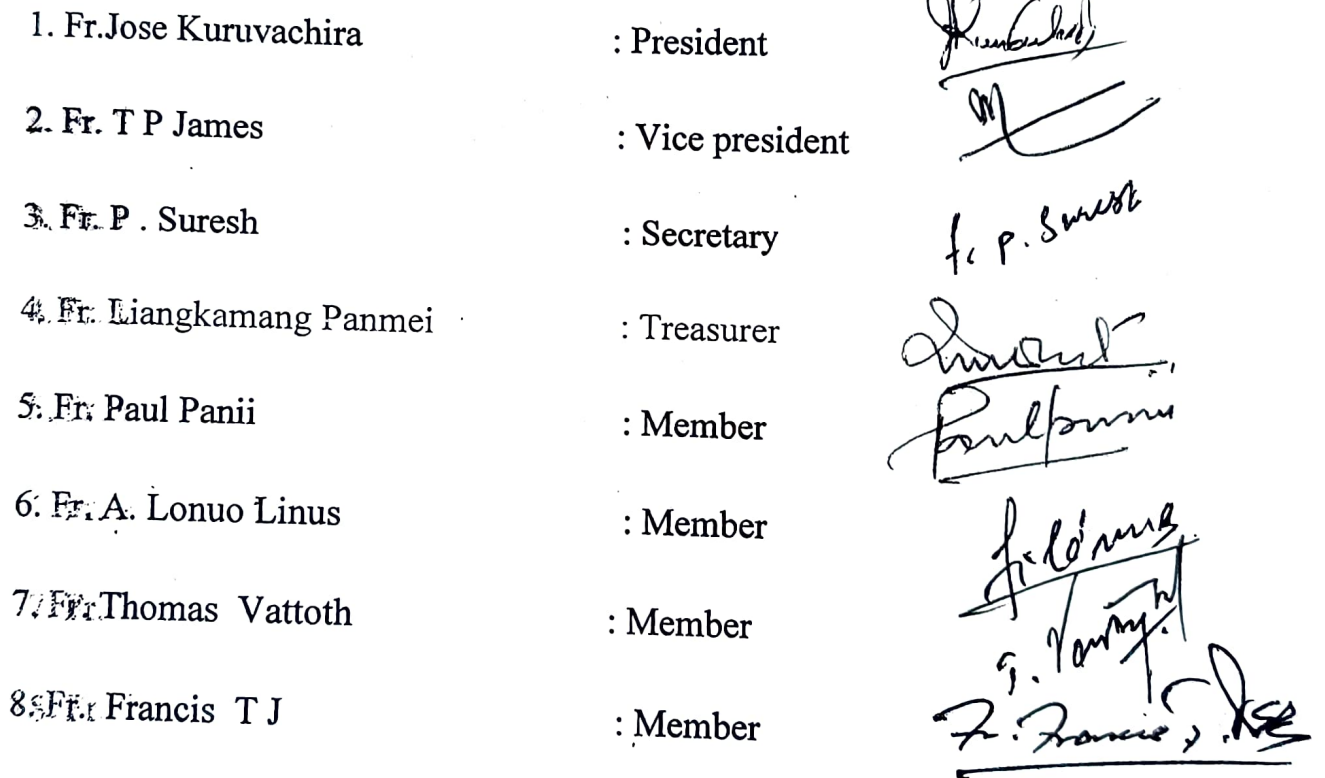 1. Fr.Jose Kuruvachira : President
2. Fr. T P James : Vice president
3. Fr. P . Suresh : Secretary f. p. Suresh
4. Fr. Liangkamang Panmei : Treasurer
5. Fr. Paul Panii : Member Paulpanii
6. Fr. A. Lonuo Linus : Member
7. Fr. Thomas Vattoth : Member
8. Fr. Francis T J : Member Fr. Francis